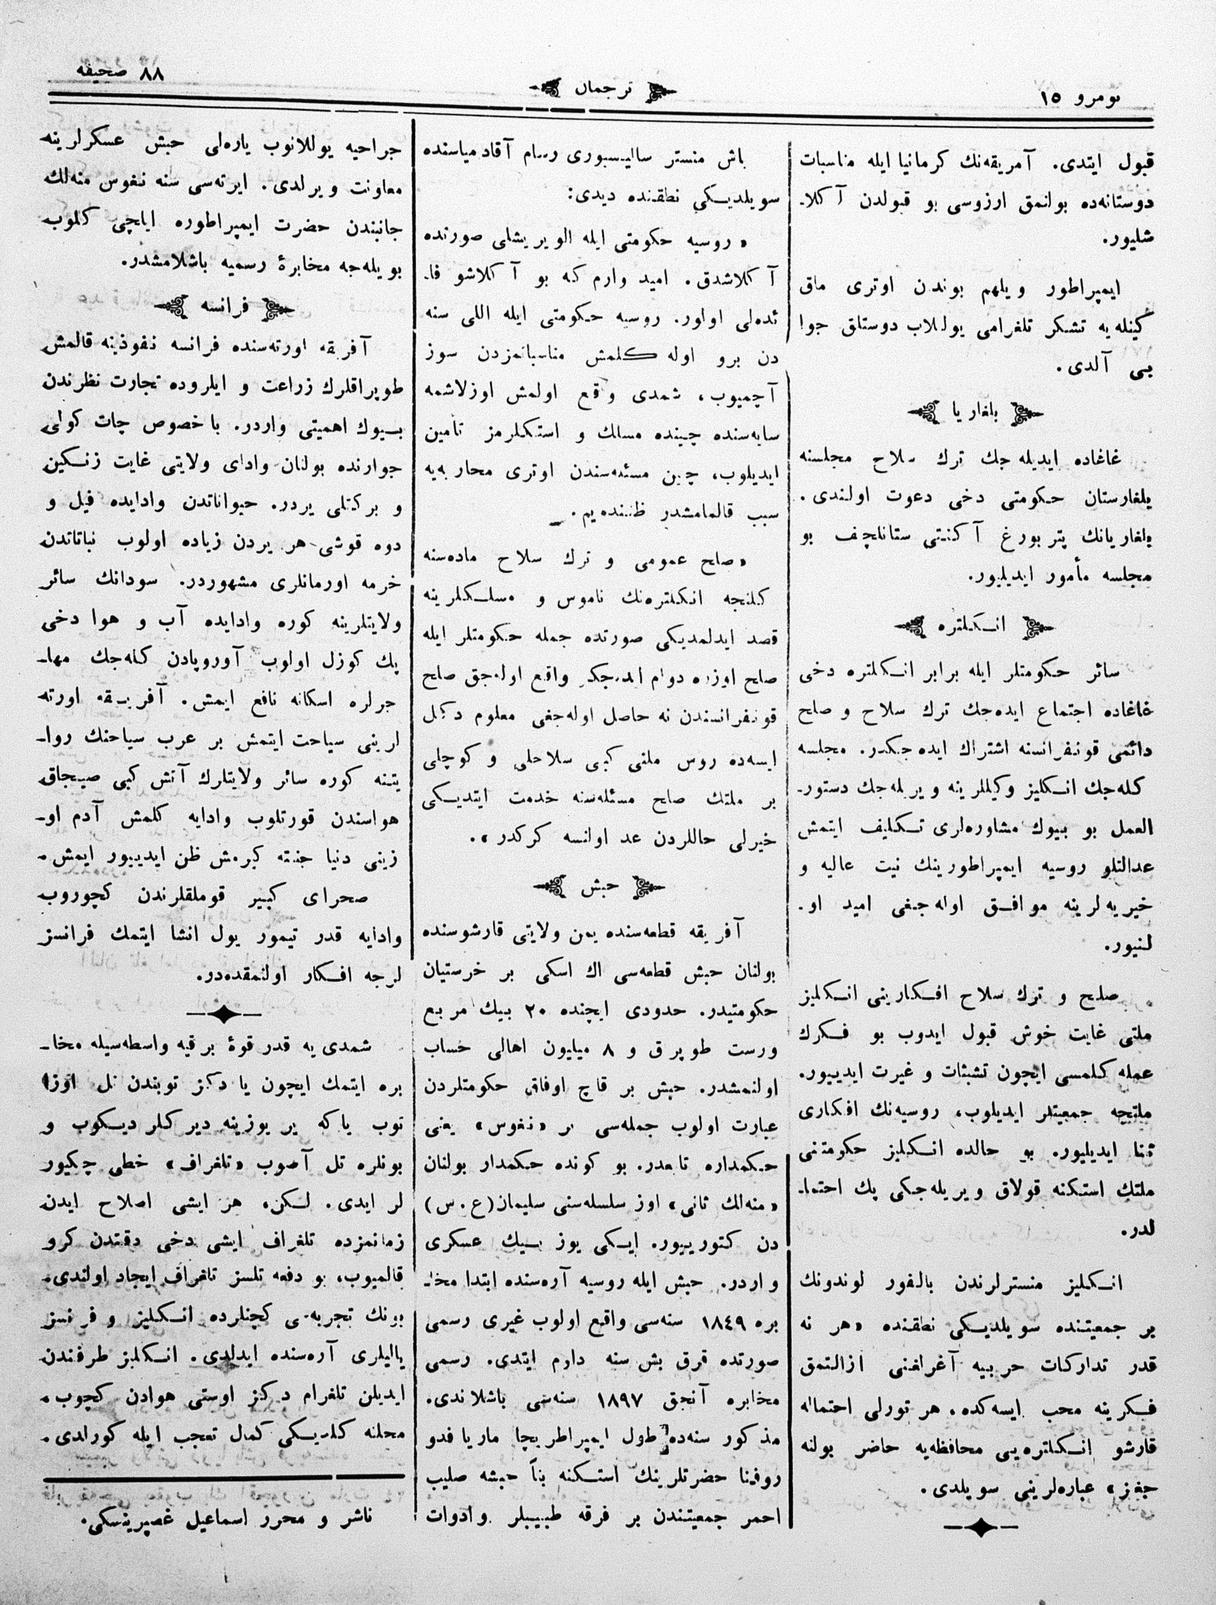 نومرو ١٥
ترجمان
٨٨ صحیفه
قبول ایتدی. آمریقه‌نك كرمانیا ایله مناسبات
دوستانه‌ده بولنمق ارزوسی بو قبولدن آكلا-
شلیور.
ایمپراطور ویلهم بوندن اوتری ماق
كینله‌یه تشكر تلغرامی یوللاب دوستلق جوا
بی آلدی.
بلغاریا
غاغاده ایدیله‌جك ترك سلاح مجلسنه
بلغارستان حكومتی دخی دعوت اولندی.
بلغاریانك پتربورغ آكنتی ستانلچف بو
مجلسه مأمور ایدیلیور.
انكلتره
سائر حكومتلر ایله برابر انكلتره دخی
غاغاده اجتماع ایده‌جك ترك سلاح و صلح
دائمی قونفرانسنه اشتراك ایده‌جكدر. مجلسه
كله‌جك انكلیز وكیللرینه ویریله‌جك دستور-
العمل بو بیوك مشاوره‌لری تكلیف ایتمش
عدالتلو روسیه ایمپراطورینك نیت عالیه و
خیریه‌لرینه موافق اوله‌جغی امید او-
لنیور.
صلح و ترك سلاح افكارینی انكلیز
ملتی غایت خوش قبول ایدوب بو فكرك
عمله كلمسی ایچون تشبثات و غیرت ایدییور.
ملتجه جمعیتلر ایدیلوب، روسیه‌نك افكاری
ثنا ایدیلیور. بو حالده انكلیز حكومتنی
ملتك استكنه قولاق ویریله‌جكی پك احتما-
لدر.
انكلیز منسترلرندن بالفور لوندونك
بر جمعیتنده سویلدیكی نطقنده «هر نه
قدر تداركات حربیه آغرلغنی ازالتمق
فكرینه محب ایسه‌كده، هر تورلی احتماله
قارشو انكلتره‌یی محافظه‌یه حاضر بولنه
جغز» عباره‌لرینی سویلدی.
باش منستر سالیسبوری رسام آقادمیاسنده
سویلدیكی نطقنده دیدی:
«روسیه حكومتی ایله الویریشلی صورتده
آكلاشدق. امید وارم كه بو آكلاشو فا-
ئده‌لی اولور. روسیه حكومتی ایله اللی سنه
دن برو اوله كلمش مناسباتمزدن سوز
آچمیوب، شمدی واقع اولمش اوزلاشمه
سایه‌سنده چینده مسالك و استكلرمز تامین
ایدیلوب، چین مسئله‌سندن اوتری محاربه‌یه
سبب قالمامشدر ظننده‌یم.
«صلح عمومی و ترك سلاح ماده‌سنه
كلنجه انكلتره‌نك ناموس و مسلكلرینه
قصد ایدلمدیكی صورتده جمله حكومتلر ایله
صلح اوزره دوام ایده‌جكدر واقع اوله‌جق صلح
قونفرانسندن نه حاصل اوله‌جغی معلوم دكل
ایسه‌ده روس ملتی كبی سلاحلی و كوچلی
بر ملتك صلح مسئله‌سنه خدمت ایتدیكی
خیرلی حاللردن عد اولنسه كركدر».
حبش
آفریقه قطعه‌سنده یمن ولایتی قارشوسنده
بولنان حبش قطعه‌سی اك اسكی بر خرستیان
حكومتیدر. حدودی ایچنده ٢٠ بیك مربع
ورست طوپرق و ٨ میلیون اهالی حساب
اولنمشدر. حبش بر قاچ اوفاق حكومتلردن
عبارت اولوب جمله‌سی بر «نغوس» یعنی
حكمداره تابعدر. بو كونده حكمدار بولنان
«منه‌لك ثانی» اوز سلسله‌سنی سلیمان (ع.س)
دن كتورییور. ایكی یوز بیك عسكری
واردر. حبش ایله روسیه آره‌سنده ابتدا مخا-
بره ١٨٤٩ سنه‌سی واقع اولوب غیری رسمی
صورتده قرق بش سنه دوام ایتدی. رسمی
مخابره آنجق ١٨٩٧ سنه‌سی باشلاندی.
مذكور سنه‌ده طول ایمپراطریچا ماریا فدو
روفنا حضرتلرینك استكنه بناً حبشه صلیب
احمر جمعیتندن بر فرقه طبیبلر وادوات
جراحیه یوللانوب یاره‌لی حبش عسكرلرینه
معاونت ویرلدی. ایرته‌سی سنه نغوس منه‌لك
جانبندن حضرت ایمپراطوره ایلچی كلوب
بویله‌جه مخابرۀ رسمیه باشلامشدر.
فرانسه
آفریقه اورته‌سنده فرانسه نفوذینه قالمش
طوپراقلرك زراعت و ایلروده تجارت نظرندن
بیوك اهمیتی واردر. باخصوص چات كولی
جوارنده بولنان وادای ولایتی غایت زنكین
و بركتلی یردر. حیواناتدن وادایده فیل و
دوه قوشی هر یردن زیاده اولوب نباتاتدن
خرمه اورمانلری مشهوردر. سودانك سائر
ولایتلرینه كوره وادایده آب و هوا دخی
پك كوزل اولوب آوروپادن كله‌جك مها-
جرلره اسكانه نافع ایمش. آفریقه اورته
لرینی سیاحت ایتمش بر عرب سیاحنك روا-
یتنه كوره سائر ولایتلرك آتش كبی صیجاق
هواسندن قورتلوب وادایه كلمش آدم او-
زینی دنیا جنته كیرمش ظن ایدییور ایمش.
صحرای كبیر قوملقلرندن كچوروب
وادایه قدر تیمور یول انشا ایتمك فرانسز
لرجه افكار اولنمقده‌در.
شمدی‌یه قدر قوۀ برقیه واسطه‌سیله مخا-
بره ایتمك ایچون یا دكز توبندن تل اوزا
توب یاكه یر یوزینه دیركلر دیكوب و
بونلره تل آصوب «تلغراف» خطی چكیور
لر ایدی. لكن هر ایشی اصلاح ایدن
زمانمزده تلغراف ایشی دخی دقتدن كرو
قالمیوب، بو دفعه تلسز تلغراف ایجاد اولندی.
بونك تجربه‌سی كچنلرده انكلیز و فرنسز
یالیلری آره‌سنده ایدلدی. انكلیز طرفندن
ایدیلن تلغرام دكز اوستی هوادن كچوب
محلنه كلدیكی كمال تعجب ایله كورلدی.
ناشر و محرر اسماعیل غصپرینسكی.